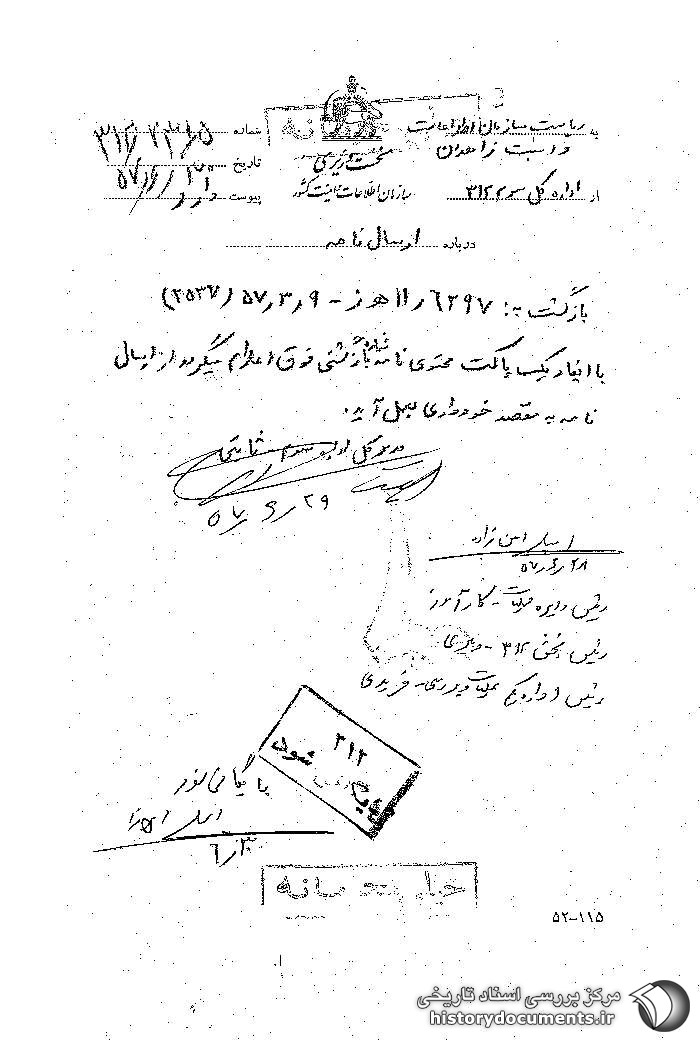 خیلی محرمانه
به ریاست سازمان اطلاعات
و امنیت زاهدان
از اداره کل سوم ۳۱۲
نخست وزیری
سازمان اطلاعات و امنیت کشور
شماره ۳۱۲/۴۳۸۵
تاریخ ۵۷/۶/۳۰
پیوست دارد
درباره ارسال نامه
بازگشت به: ۱۱/۶۲۹۷ هـ ز - ۵۷/۳/۹ (۲۵۳۷)
با ایفاد یکسره پاکت محتوی نامه شماره بازگشتی فوق اعلام میگردد از ارسال
نامه به مقصد خودداری بعمل آید.
مدیر کل اداره سوم ثابتی
۵۷/۶/۲۹
۵۷/۶/۲۸
رئیس دایره عملیات - کارآموز
رئیس بخش ۳۱۲ - وزیری
رئیس اداره یکم عملیات و بررسی - فریدی
۳۱۲
بایگانی شود
بایگانی شود
۶/۳۰
خیلی محرمانه
۵۲-۱۱۵
مرکز بررسی اسناد تاریخی
historydocuments.ir